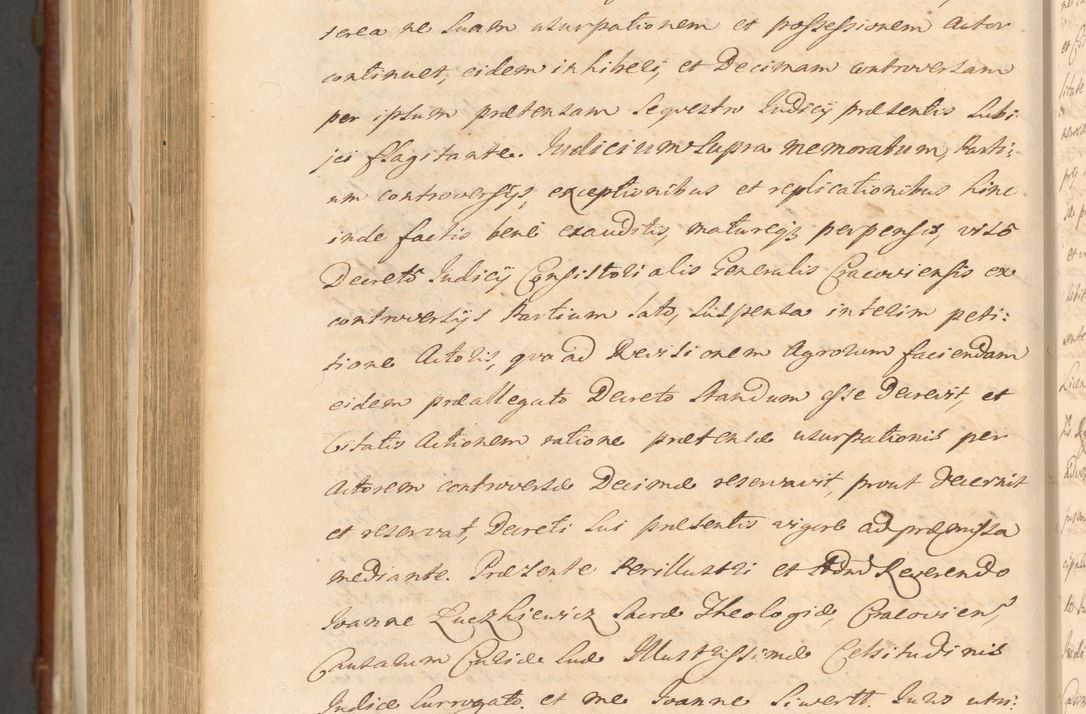 terea ne suam usurpationem et possessionem Actor
continuet, eidem inhiberi, et Decimam controversam
per ipsum prætensam sequestro Judicÿ præsentis subi:
jci flagitante. Judicium supra memoratum, Parti:
um controversÿs, exceptionibus et replicationibus hinc
inde factis bene exauditis, matureq; perpensis, viso
Decreto Judicÿ Consistorialis Generalis Cracoviensis ex
controversÿs Partium lato, suspensa interim peti:
tione Actoris, qua ad Revisionem Agrorum faciendam
eidem præallegato Decreto standum esse decrevit, et
Citatis Actionem ratione prætensæ usurpationis per
Actorem controversæ Decimæ reservavit, prout decernit
et reservat, Decreti sui præsentis vigore ad præmissa
mediante. Præsente Perillustri et Admd Reverendo
Joanne Łuczkiewicz Sacræ Theologiæ, Cracovien̄,
Causarum Curiæ suæ Illustrissimæ Celsitudinis
Judice Surrogato. et me Joanne Siwertt. Juro utri: